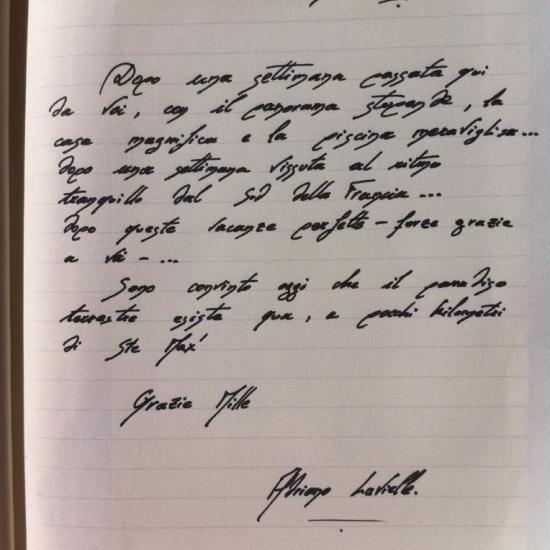 Dopo una settimana passata qui
da voi, con il panorama stupendo, la
casa magnifica e la piscina meravigliosa...
dopo una settimana vissuta al ritmo
tranquillo dal Sod della Francia...
dopo queste vacanze perfette - forze grazie
a voi - ...
Sono convinto oggi che il paradiso
terrestre esiste qua, a pochi kilometri
di Ste Max'
Grazie Mille
Adriano Lavialle.